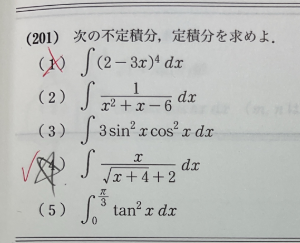 (201) 次の不定積分，定積分を求めよ．
(1) ∫(2－3x)⁴ dx
(2) ∫ 1/(x²＋x－6) dx
(3) ∫ 3 sin² x cos² x dx
(4) ∫ x/(√(x＋4)＋2) dx
(5) ∫₀^(π/3) tan² x dx